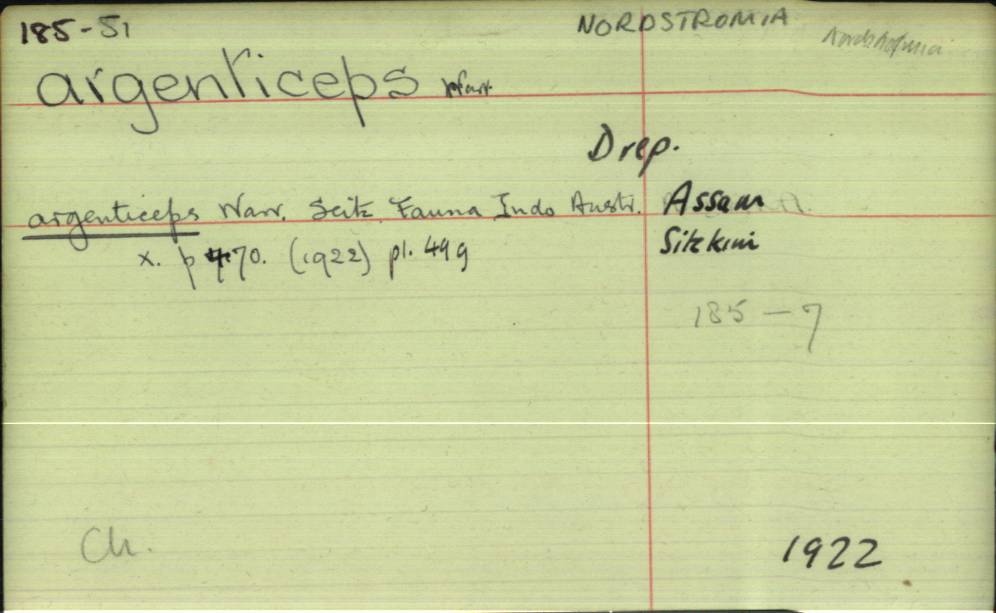 185-51 NORDSTROMIA Nordstromia
argenticeps Warr.
Drep.
argenticeps Warr. Seitz. Fauna Indo Austr. Assam
x. p 470. (1922) pl. 49 g Sikkim
185 - 7
Ch. 1922